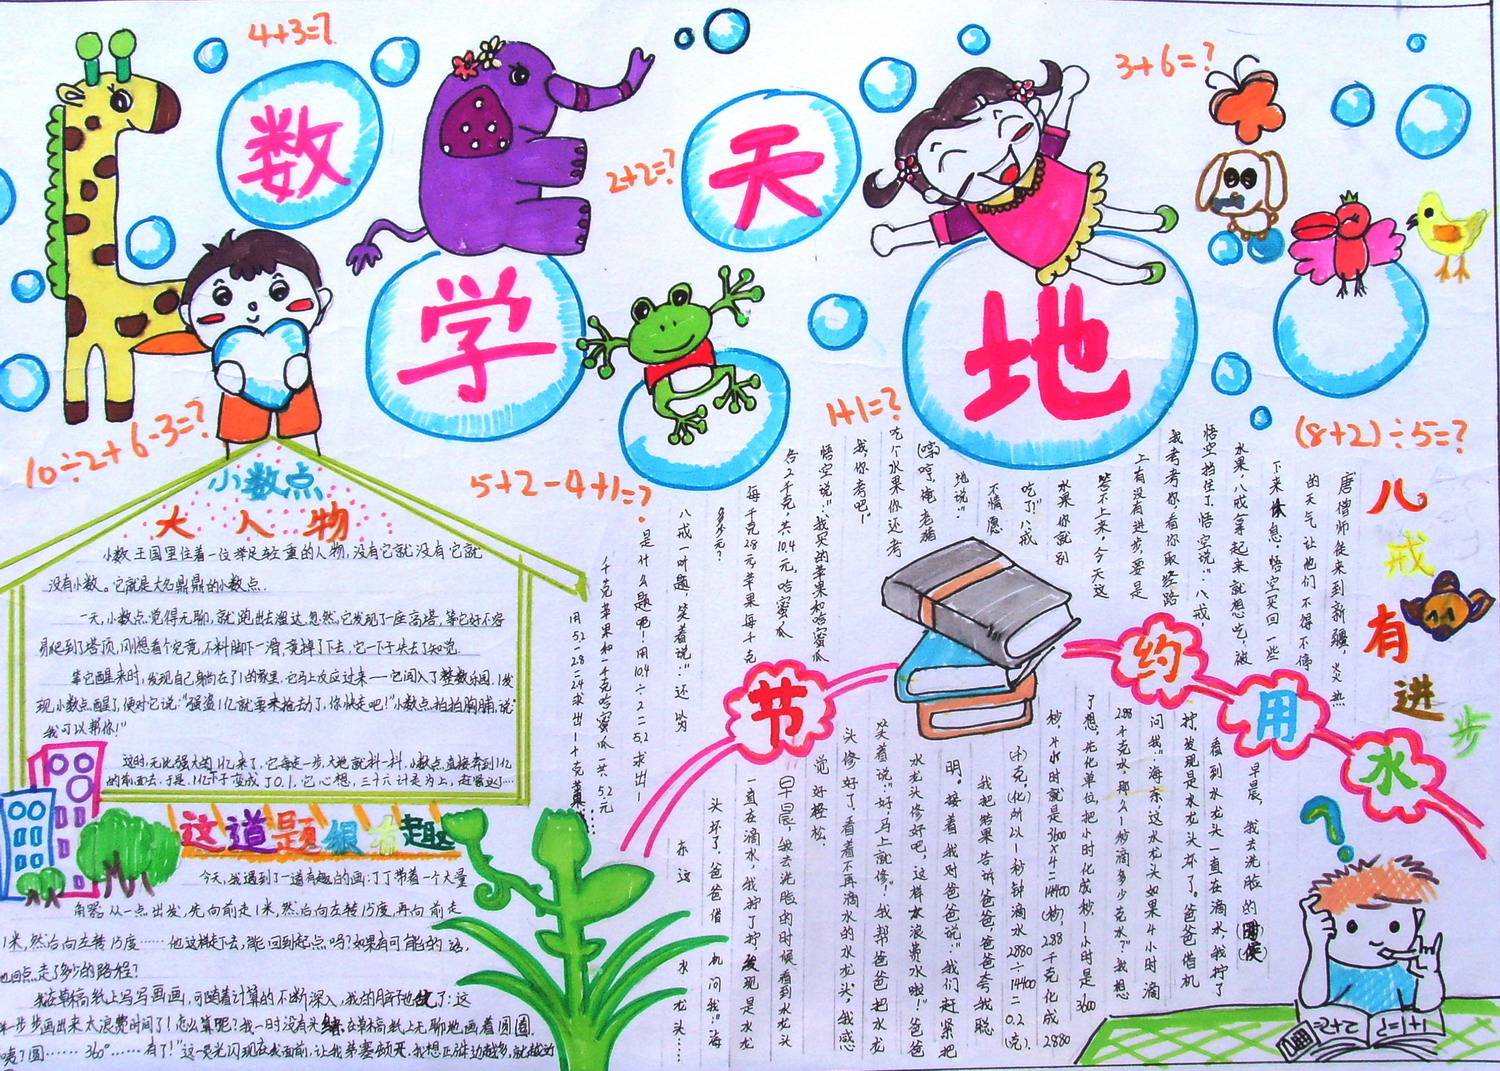 4+3=?
数学天地
2+2=?
3+6=?
1+1=?
10÷2+6-3=?
5+2-4+1=?
(8+2)÷5=?
小数点
大人物
小数王国里住着一位举足轻重的人物,没有它就没有它就
没有小数。它就是大名鼎鼎的小数点.
一天,小数点觉得无聊,就跑出去溜达.忽然,它发现了一座高塔,等它好不容
易爬到了塔顶,刚想看个究竟,不料脚下一滑,竟掉了下去,它一下子失去了知觉.
等它醒来时,发现自己躺在了1的家里.它马上反应过来——它闯入了整数乐园.1发
现小数点醒了,便对它说:"强盗1亿就要来抢劫了,你快走吧!"小数点拍拍胸脯,说:"
我可以帮你!"
这时,无比强大的1亿来了.它每走一步,大地就抖一抖.小数点直接奔到1亿
的前面去.于是,1亿下子变成了0.1.它心想,三十六计走为上,赶紧逃了…
这道题很有趣
今天,我遇到了一道有趣的画:丁丁带着一个大量
角器,从一点出发,先向前走1米,然后向左转15度,再向前走
1米,然后向左转15度……他这样走下去,能回到起点吗?如果有可能的话,
他回点走了多少的路程?
我在草稿纸上写写画画,可随着计算的不断深入,我的脖子也
步步画出来太浪费时间了!怎么算呢?我一时没有头绪,在草稿纸上无聊地画着圆圆.
咦?圆……360°……有了!"这一灵光闪现在我面前,让我茅塞顿开,我想正
八戒有进步
唐僧师徒来到新疆,炎热
的天气让他们不得不停
下来休息,悟空买回一些
水果,八戒拿起来就想吃,被
悟空挡住了.悟空说:"八戒,
我考考你,看你取经路
上有没有进步,要是
答不上来,今天这
水果你就别
吃了!"八戒
不情愿
地说:"
(哼)哼,俺老猪
吃个水果你还考
我,你考吧!"
悟空说:"我买的苹果和哈蜜瓜
各2千克,共10.4元,哈蜜瓜
每千克2.8元,苹果每千克
多少元?"
八戒一听题,笑着说:"还以为
是什么题呢!用10.4÷2=5.2求出1
千克苹果和一千克哈蜜瓜一共5.2元
用5.2-2.8=2.4求出1千克苹果……
节约用水
早晨,我去洗脸的(时候)
看到水龙头一直在滴水,我拧了
拧,发现是水龙头坏了。爸爸借机
问我:"海东,这水龙头如果4小时滴
2.88千克水,那么1秒滴多少克水?"我想
了想,先化单位,把小时化成秒,1小时是3600
秒,4小时就是3600×4=14400(秒),2.88千克化成2880
(千克.(化)所以1秒钟滴水2880÷14400=0.2(克).
我把结果告诉爸爸,爸爸夸我聪
明.接着我对爸爸说:"我们赶紧把
水龙头修好吧,这样太浪费水啦!"爸爸
笑着说:"好,马上就修."我帮爸爸把水龙
头修好了,看着不再滴水的水龙头,我感
觉好轻松.
早晨,我去洗脸的时候看到水龙头
一直在滴水,我拧了拧,发现是水龙
头坏了.爸爸借机问我:"海
东这水龙头……
?
2+2=
1+1=?